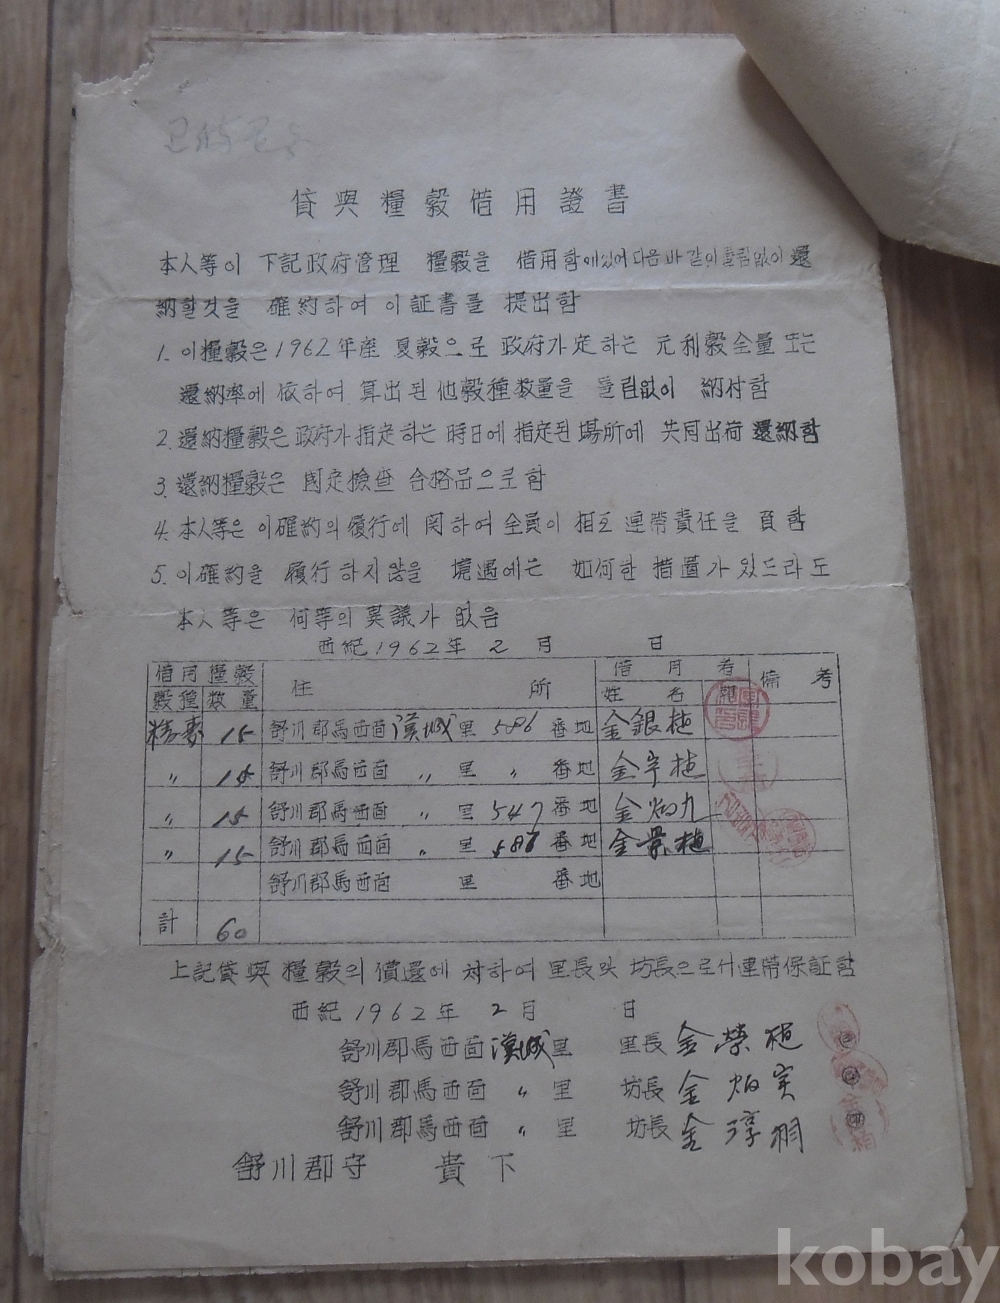 貸與糧穀借用證書
本人等이 下記政府管理 糧穀을 借用함에있어 다음바같이 틀림없이 還
納할것을 確約하여 이証書를 提出함
1. 이糧穀은 1962年産 夏穀으로 政府가定하는 元利穀全量 또는
還納率에 依하여 算出된 他穀種数量을 틀림없이 納付함
2. 還納糧穀은 政府가 指定하는 時日에 指定된 場所에 共同出荷 還納함
3. 還納糧穀은 國定檢查 合格品으로 함
4. 本人等은 이確約의 履行에 関하여 全員이 相互 連帶責任을 負함
5. 이確約을 履行하지않을 境遇에는 如何한 措置가 있드라도
本人等은 何等의 異議가 없음
西紀 1962年 2月 日
借用糧穀 住所 借用者 備考
穀種 数量 姓名 印
精麥 15 舒川郡馬西面 漢城里 586番地 金銀植
〃 15 舒川郡馬西面 〃 里 〃 番地 金宇植
〃 15 舒川郡馬西面 〃 里 547番地 金炳九
〃 15 舒川郡馬西面 〃 里 番地 金景植
舒川郡馬西面 里 番地
計 60
上記貸與 糧穀의 償還에 対하여 里長 및 坊長으로서 連帶保証함
西紀 1962年 2月 日
舒川郡馬西面 漢城里 里長 金榮植 ㊞
舒川郡馬西面 〃 里 坊長 金炳実 ㊞
舒川郡馬西面 〃 里 坊長 金淳羽 ㊞
舒川郡守 貴下
kobay